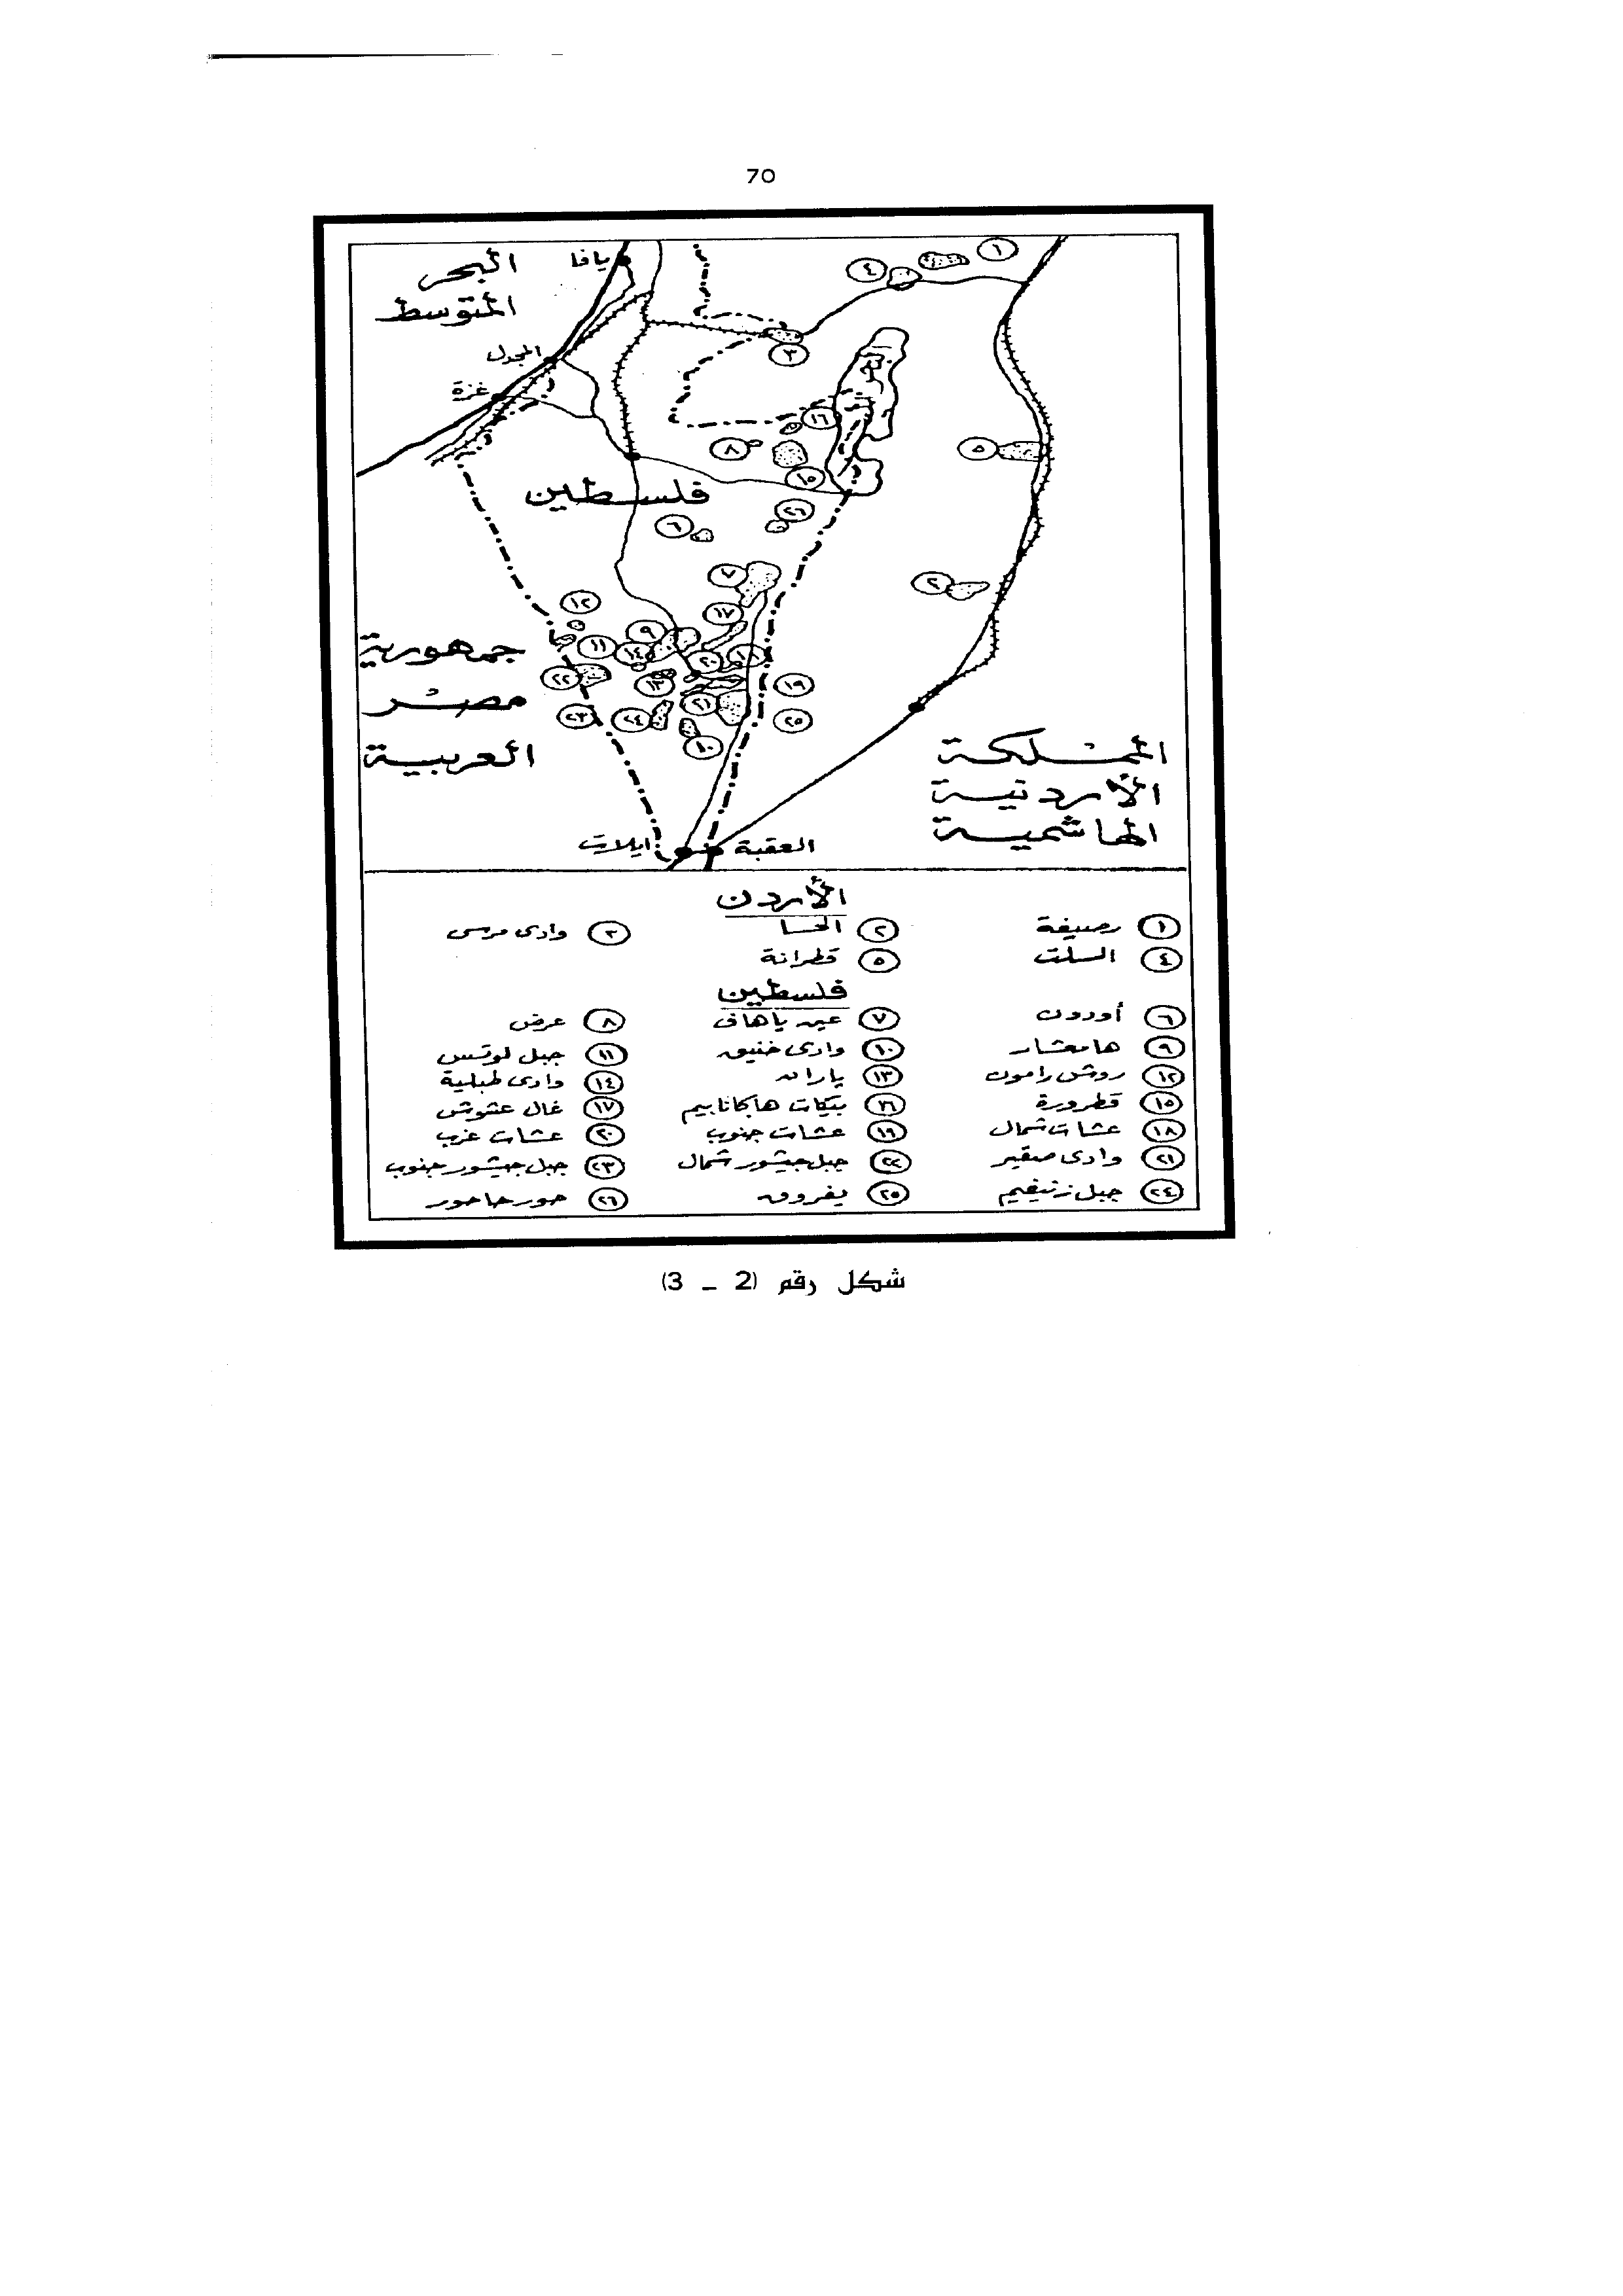 70
البحر
المتوسط
يافا
المجدل
غزة
١
٤
٣
١٦
٨
٥
١٥
فلسطين
٢٦
٦
٧
٢
١٢
١٧
٩
١١
١٤
٢٠
١٨
جمهورية
مصر
العربية
٢٢
١٣
١٩
٢٣
٢٤
٢١
٢٥
١٠
المملكة
الأردنية
الهاشمية
ايلات
العقبة
الأردن
١ رصيفة ٢ الحسا ٣ وادى مرسى
٤ السلت ٥ قطرانة
فلسطين
٦ أورون ٧ عين ياهاف ٨ عرض
٩ هامعشار ١٠ وادى خنيق ١١ جبل لوتس
١٢ روش رامون ١٣ ياران ١٤ وادى طبلية
١٥ قطرورة ١٦ بيكات هاكانابيم ١٧ غال عشوش
١٨ عشات شمال ١٩ عشات جنوب ٢٠ عشات غرب
٢١ وادى صقير ٢٢ جبل جيشور شمال ٢٣ جبل جيشور جنوب
٢٤ جبل زنيفيم ٢٥ يفروق ٢٦ حور حاحور
شكل رقم (2 _ 3)